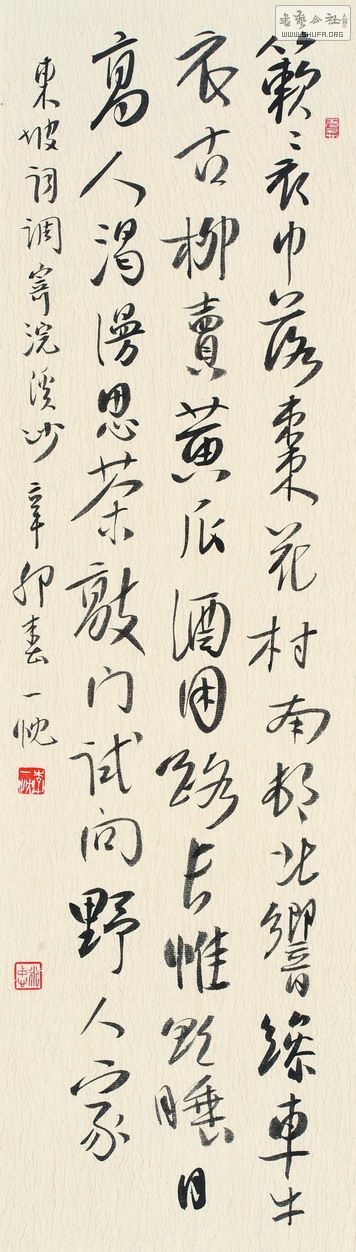 簌〻衣巾落棗花村南村北響繰車牛
衣古柳賣黃瓜酒困路長惟欲睡日
高人渴漫思茶敲门试问野人家
東坡词调寄浣溪沙辛卯春一忱
書藝公社
WWW.SHUFA.ORG